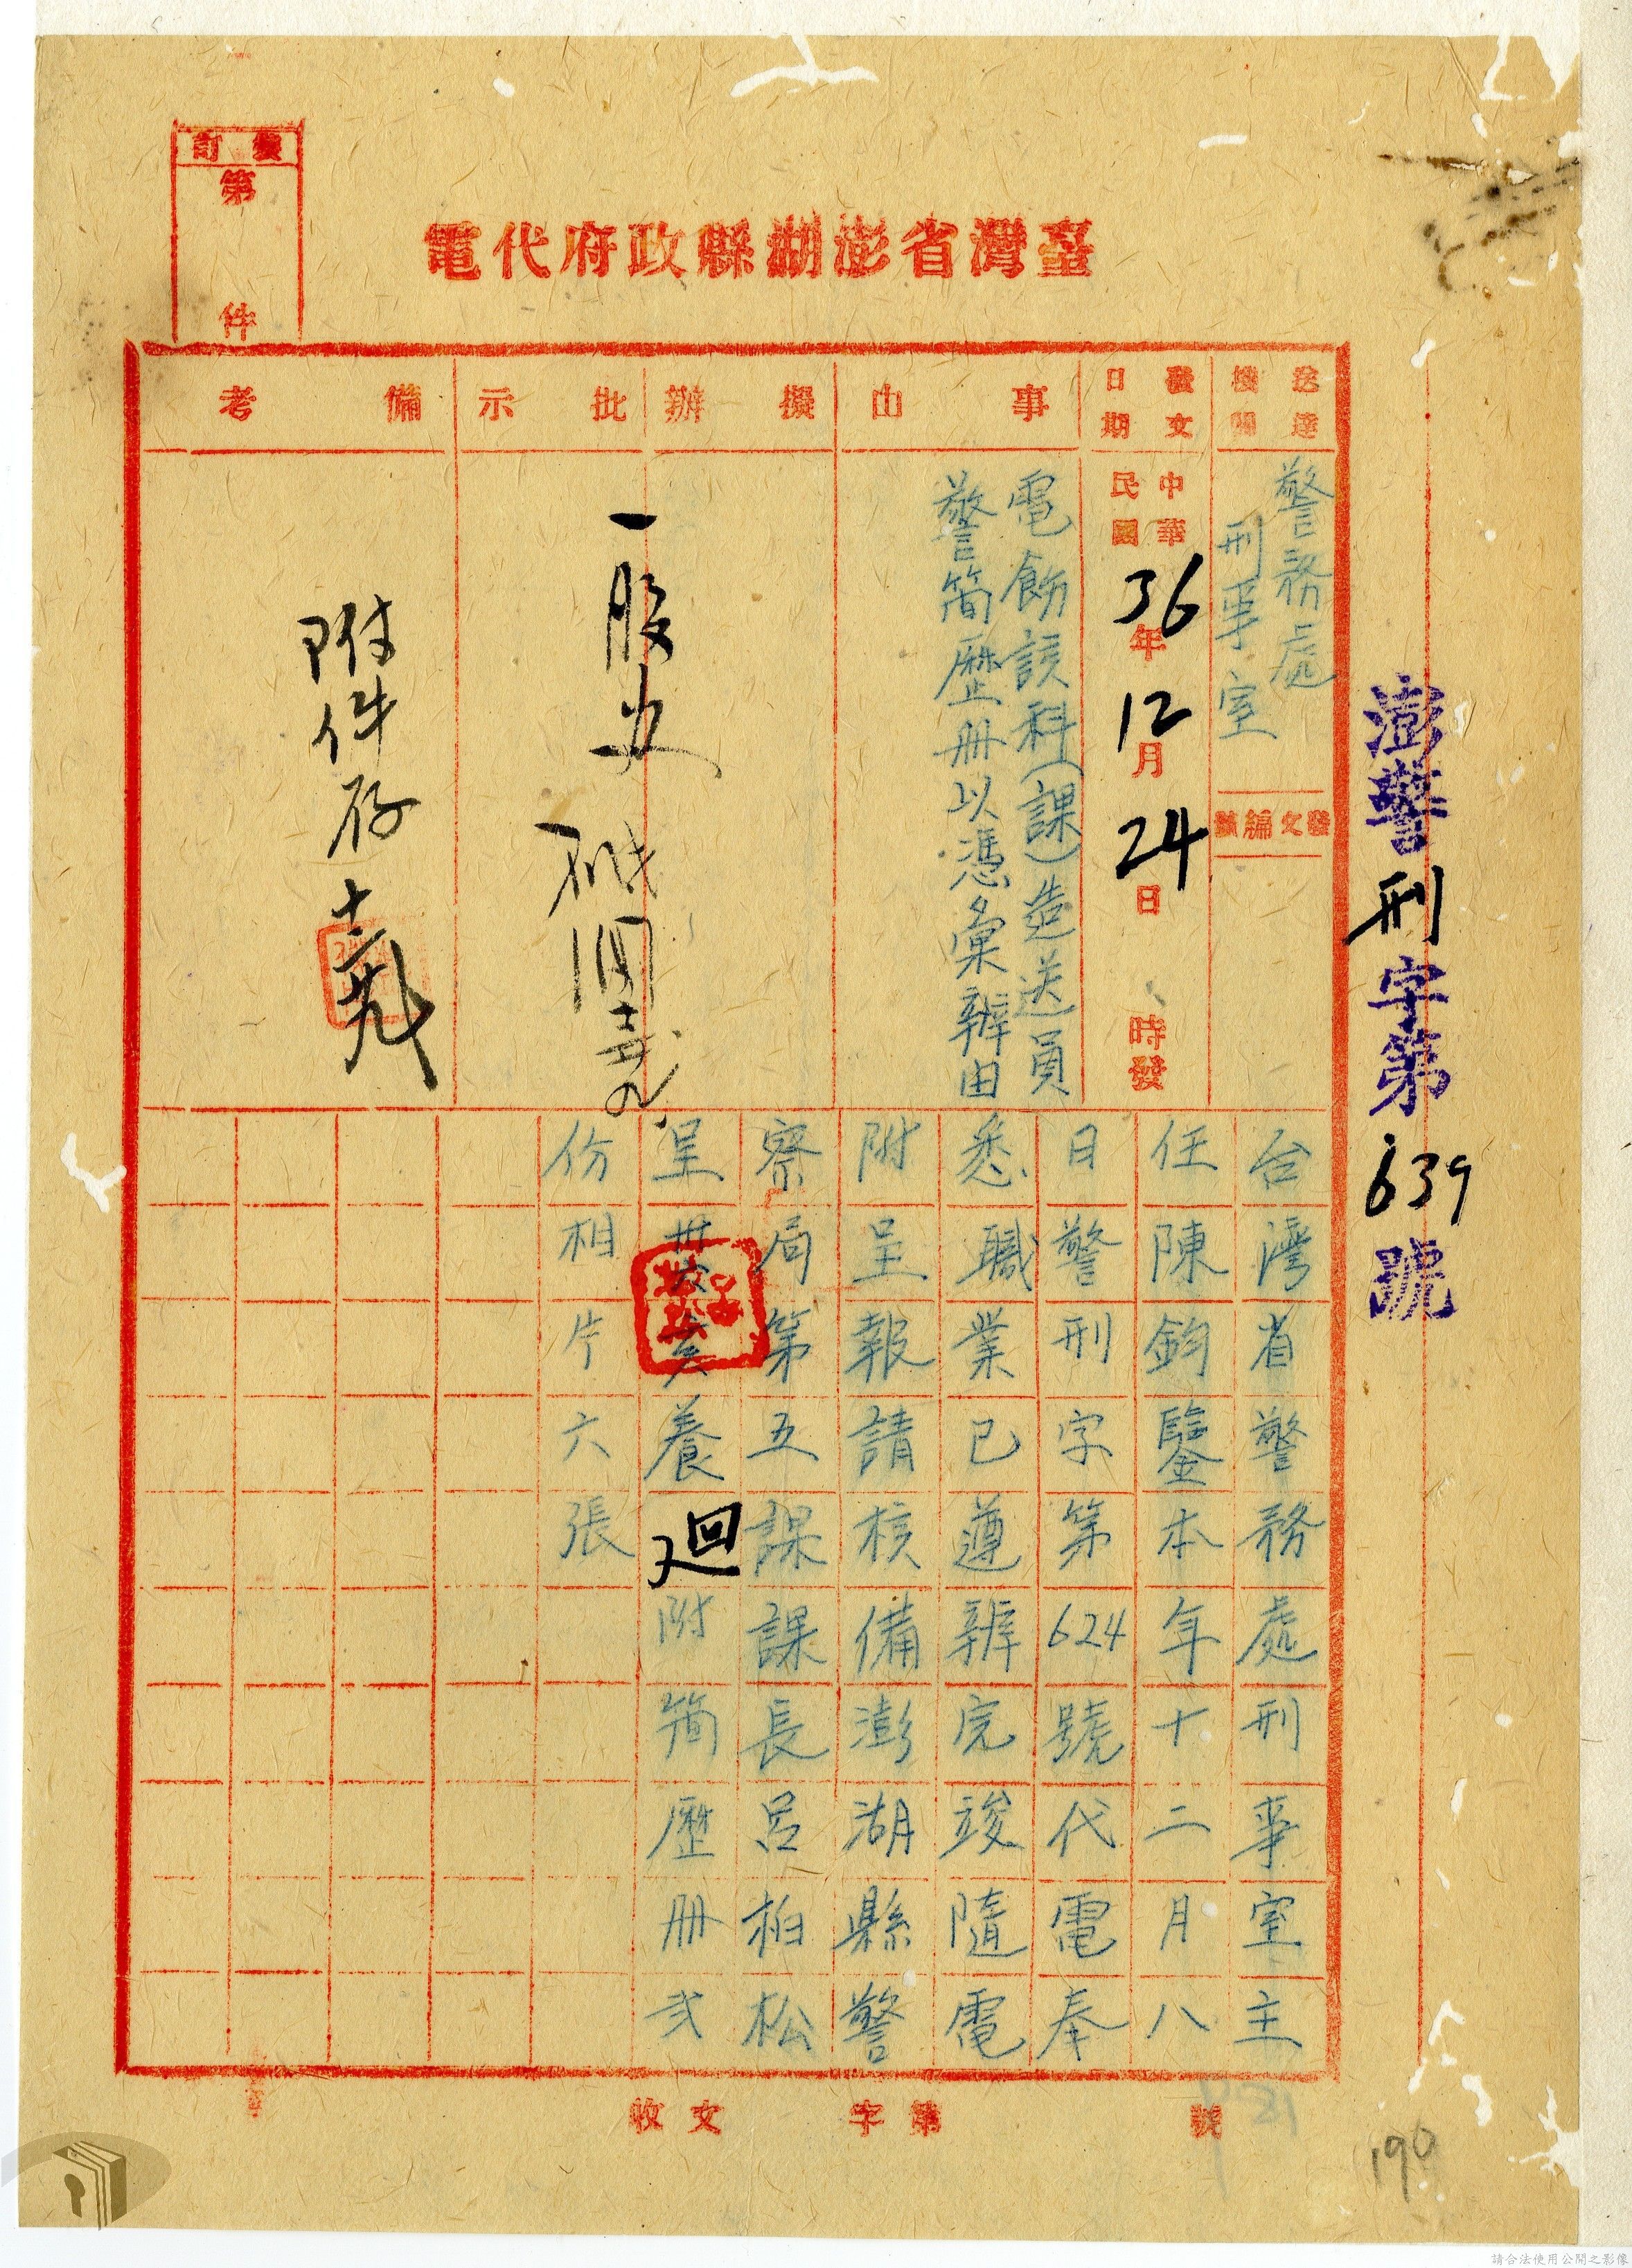 臺灣省澎湖縣政府代電
裝訂
第
件
澎警刑字第639號
送達機關
警務處
刑事室
發文編號
發文日期
中華民國36年12月24日
時發
事由
電飭該科(課)造送員
警簡歷冊以憑彙辦由
擬辦
批示
備考
附件存
台灣省警務處刑事室主
任陳鈞鑒本年十二月八
日警刑字第624號代電奉
悉職業已遵辦完竣隨電
附呈報請核備澎湖縣警
察局第五課課長呂柏松
呈亥養廻附簡歷冊弐
份相片六張
收文
字第
號
190
請合法使用公開之影像